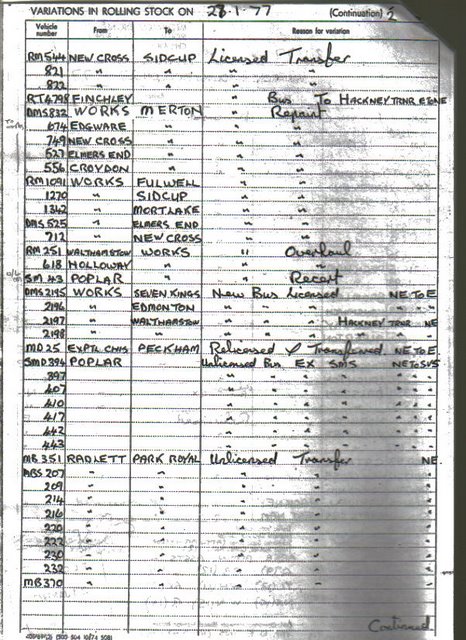 VARIATIONS IN ROLLING STOCK ON 28.1.77 (Continuation) 2
Vehicle number From To Reason for variation
RM544 NEW CROSS SIDCUP Licensed Transfer
821 " " " "
822 " " " "
RT4798 FINCHLEY " Bus To HACKNEY TRNR E to NE
DMS832 WORKS MERTON " Repaint
674 EDGWARE " " "
749 NEW CROSS " " "
527 ELMERS END " " "
556 CROYDON " " "
RM1091 WORKS FULWELL " "
1270 " SIDCUP " "
1342 " MORTLAKE " "
DMS525 " ELMERS END " "
712 " NEW CROSS " "
RM251 WALTHAMSTOW WORKS " Overhaul
618 HOLLOWAY " " "
SM43 POPLAR " " Recert
DMS2195 WORKS SEVEN KINGS New Bus Licensed NE To E
2196 " EDMONTON " " " "
2197 " WALTHAMSTOW " " HACKNEY TRNR NE
2198 " " " " " "
MD25 EXPTL CHIS PECKHAM Relicensed & Transferred NE To E
SMD394 POPLAR Unlicensed Bus EX SMS NE To SVS
397 " " " " " "
407 " " " " " "
410 " " " " " "
417 " " " " " "
442 " " " " " "
443 " " " " " "
MB351 RADLETT PARK ROYAL Unlicensed Transfer NE
MBS207 " " " " "
209 " " " " "
214 " " " " "
216 " " " " "
220 " " " " "
222 " " " " "
230 " " " " "
232 " " " " "
MB370 " " " " "
Continued